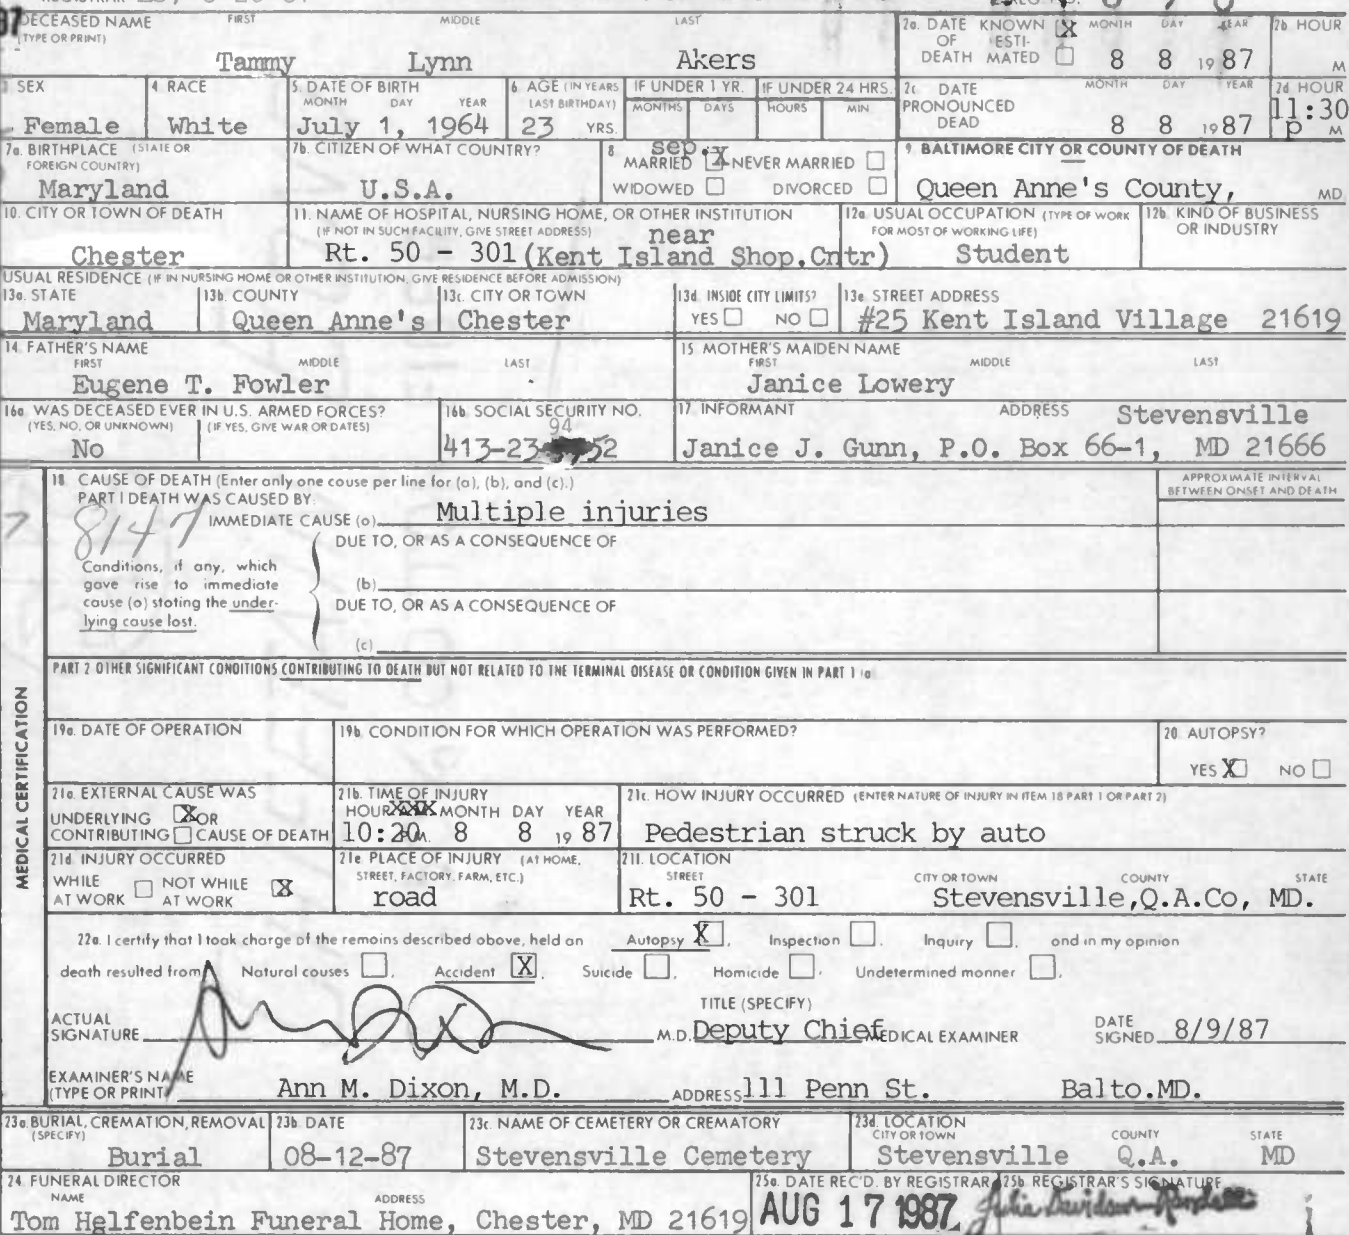 DECEASED NAME FIRST MIDDLE LAST
(TYPE OR PRINT)
Tammy Lynn Akers
2a. DATE KNOWN X MONTH DAY YEAR
OF ESTI-
DEATH MATED 8 8 1987
2b HOUR
M
3. SEX
Female
4. RACE
White
5. DATE OF BIRTH
MONTH DAY YEAR
July 1, 1964
6. AGE (IN YEARS
LAST BIRTHDAY)
23 YRS.
IF UNDER 1 YR.
MONTHS DAYS
IF UNDER 24 HRS.
HOURS MIN.
2c DATE MONTH DAY YEAR
PRONOUNCED
DEAD 8 8 1987
2d HOUR
11:30
p M
7a. BIRTHPLACE (STATE OR
FOREIGN COUNTRY)
Maryland
7b. CITIZEN OF WHAT COUNTRY?
U.S.A.
8. sep.
MARRIED X NEVER MARRIED
WIDOWED DIVORCED
9. BALTIMORE CITY OR COUNTY OF DEATH
Queen Anne's County, MD.
10. CITY OR TOWN OF DEATH
Chester
11. NAME OF HOSPITAL, NURSING HOME, OR OTHER INSTITUTION
(IF NOT IN SUCH FACILITY, GIVE STREET ADDRESS) near
Rt. 50 - 301 (Kent Island Shop.Cntr)
12a. USUAL OCCUPATION (TYPE OF WORK
FOR MOST OF WORKING LIFE)
Student
12b. KIND OF BUSINESS
OR INDUSTRY
USUAL RESIDENCE (IF IN NURSING HOME OR OTHER INSTITUTION, GIVE RESIDENCE BEFORE ADMISSION)
13a. STATE
Maryland
13b. COUNTY
Queen Anne's
13c. CITY OR TOWN
Chester
13d INSIDE CITY LIMITS?
YES NO
13e STREET ADDRESS
#25 Kent Island Village 21619
14. FATHER'S NAME
FIRST MIDDLE LAST
Eugene T. Fowler
15. MOTHER'S MAIDEN NAME
FIRST MIDDLE LAST
Janice Lowery
16a WAS DECEASED EVER IN U.S. ARMED FORCES?
(YES, NO, OR UNKNOWN) (IF YES, GIVE WAR OR DATES)
No
16b. SOCIAL SECURITY NO.
94
413-23- 52
17. INFORMANT ADDRESS Stevensville
Janice J. Gunn, P.O. Box 66-1, MD 21666
MEDICAL CERTIFICATION
18. CAUSE OF DEATH (Enter only one cause per line for (a), (b), and (c).)
PART I DEATH WAS CAUSED BY:
8147
IMMEDIATE CAUSE (a) Multiple injuries
APPROXIMATE INTERVAL
BETWEEN ONSET AND DEATH
DUE TO, OR AS A CONSEQUENCE OF
Conditions, if any, which
gave rise to immediate
cause (a) stating the under-
lying cause last.
(b)
DUE TO, OR AS A CONSEQUENCE OF
(c)
PART 2 OTHER SIGNIFICANT CONDITIONS CONTRIBUTING TO DEATH BUT NOT RELATED TO THE TERMINAL DISEASE OR CONDITION GIVEN IN PART 1 (a
19a. DATE OF OPERATION
19b. CONDITION FOR WHICH OPERATION WAS PERFORMED?
20. AUTOPSY?
YES X NO
21a. EXTERNAL CAUSE WAS
UNDERLYING X OR
CONTRIBUTING CAUSE OF DEATH
21b. TIME OF INJURY
HOUR XXXX MONTH DAY YEAR
10:20 M. 8 8 1987
21c. HOW INJURY OCCURRED (ENTER NATURE OF INJURY IN ITEM 18 PART 1 OR PART 2)
Pedestrian struck by auto
21d. INJURY OCCURRED
WHILE AT WORK NOT WHILE AT WORK X
21e PLACE OF INJURY (AT HOME,
STREET, FACTORY, FARM, ETC.)
road
21f. LOCATION
STREET CITY OR TOWN COUNTY STATE
Rt. 50 - 301 Stevensville,Q.A.Co, MD.
22a. I certify that I took charge of the remains described above, held an Autopsy X, Inspection , Inquiry , and in my opinion
death resulted from Natural causes , Accident X, Suicide , Homicide , Undetermined manner .
TITLE (SPECIFY)
ACTUAL
SIGNATURE M.D. Deputy Chief MEDICAL EXAMINER
DATE
SIGNED 8/9/87
EXAMINER'S NAME
(TYPE OR PRINT) Ann M. Dixon, M.D. ADDRESS 111 Penn St. Balto.MD.
23a. BURIAL, CREMATION, REMOVAL
(SPECIFY)
Burial
23b. DATE
08-12-87
23c. NAME OF CEMETERY OR CREMATORY
Stevensville Cemetery
23d. LOCATION
CITY OR TOWN COUNTY STATE
Stevensville Q.A. MD
24. FUNERAL DIRECTOR
NAME ADDRESS
Tom Helfenbein Funeral Home, Chester, MD 21619
25a. DATE REC'D. BY REGISTRAR
AUG 17 1987
25b. REGISTRAR'S SIGNATURE
Julia Davidson-Randall